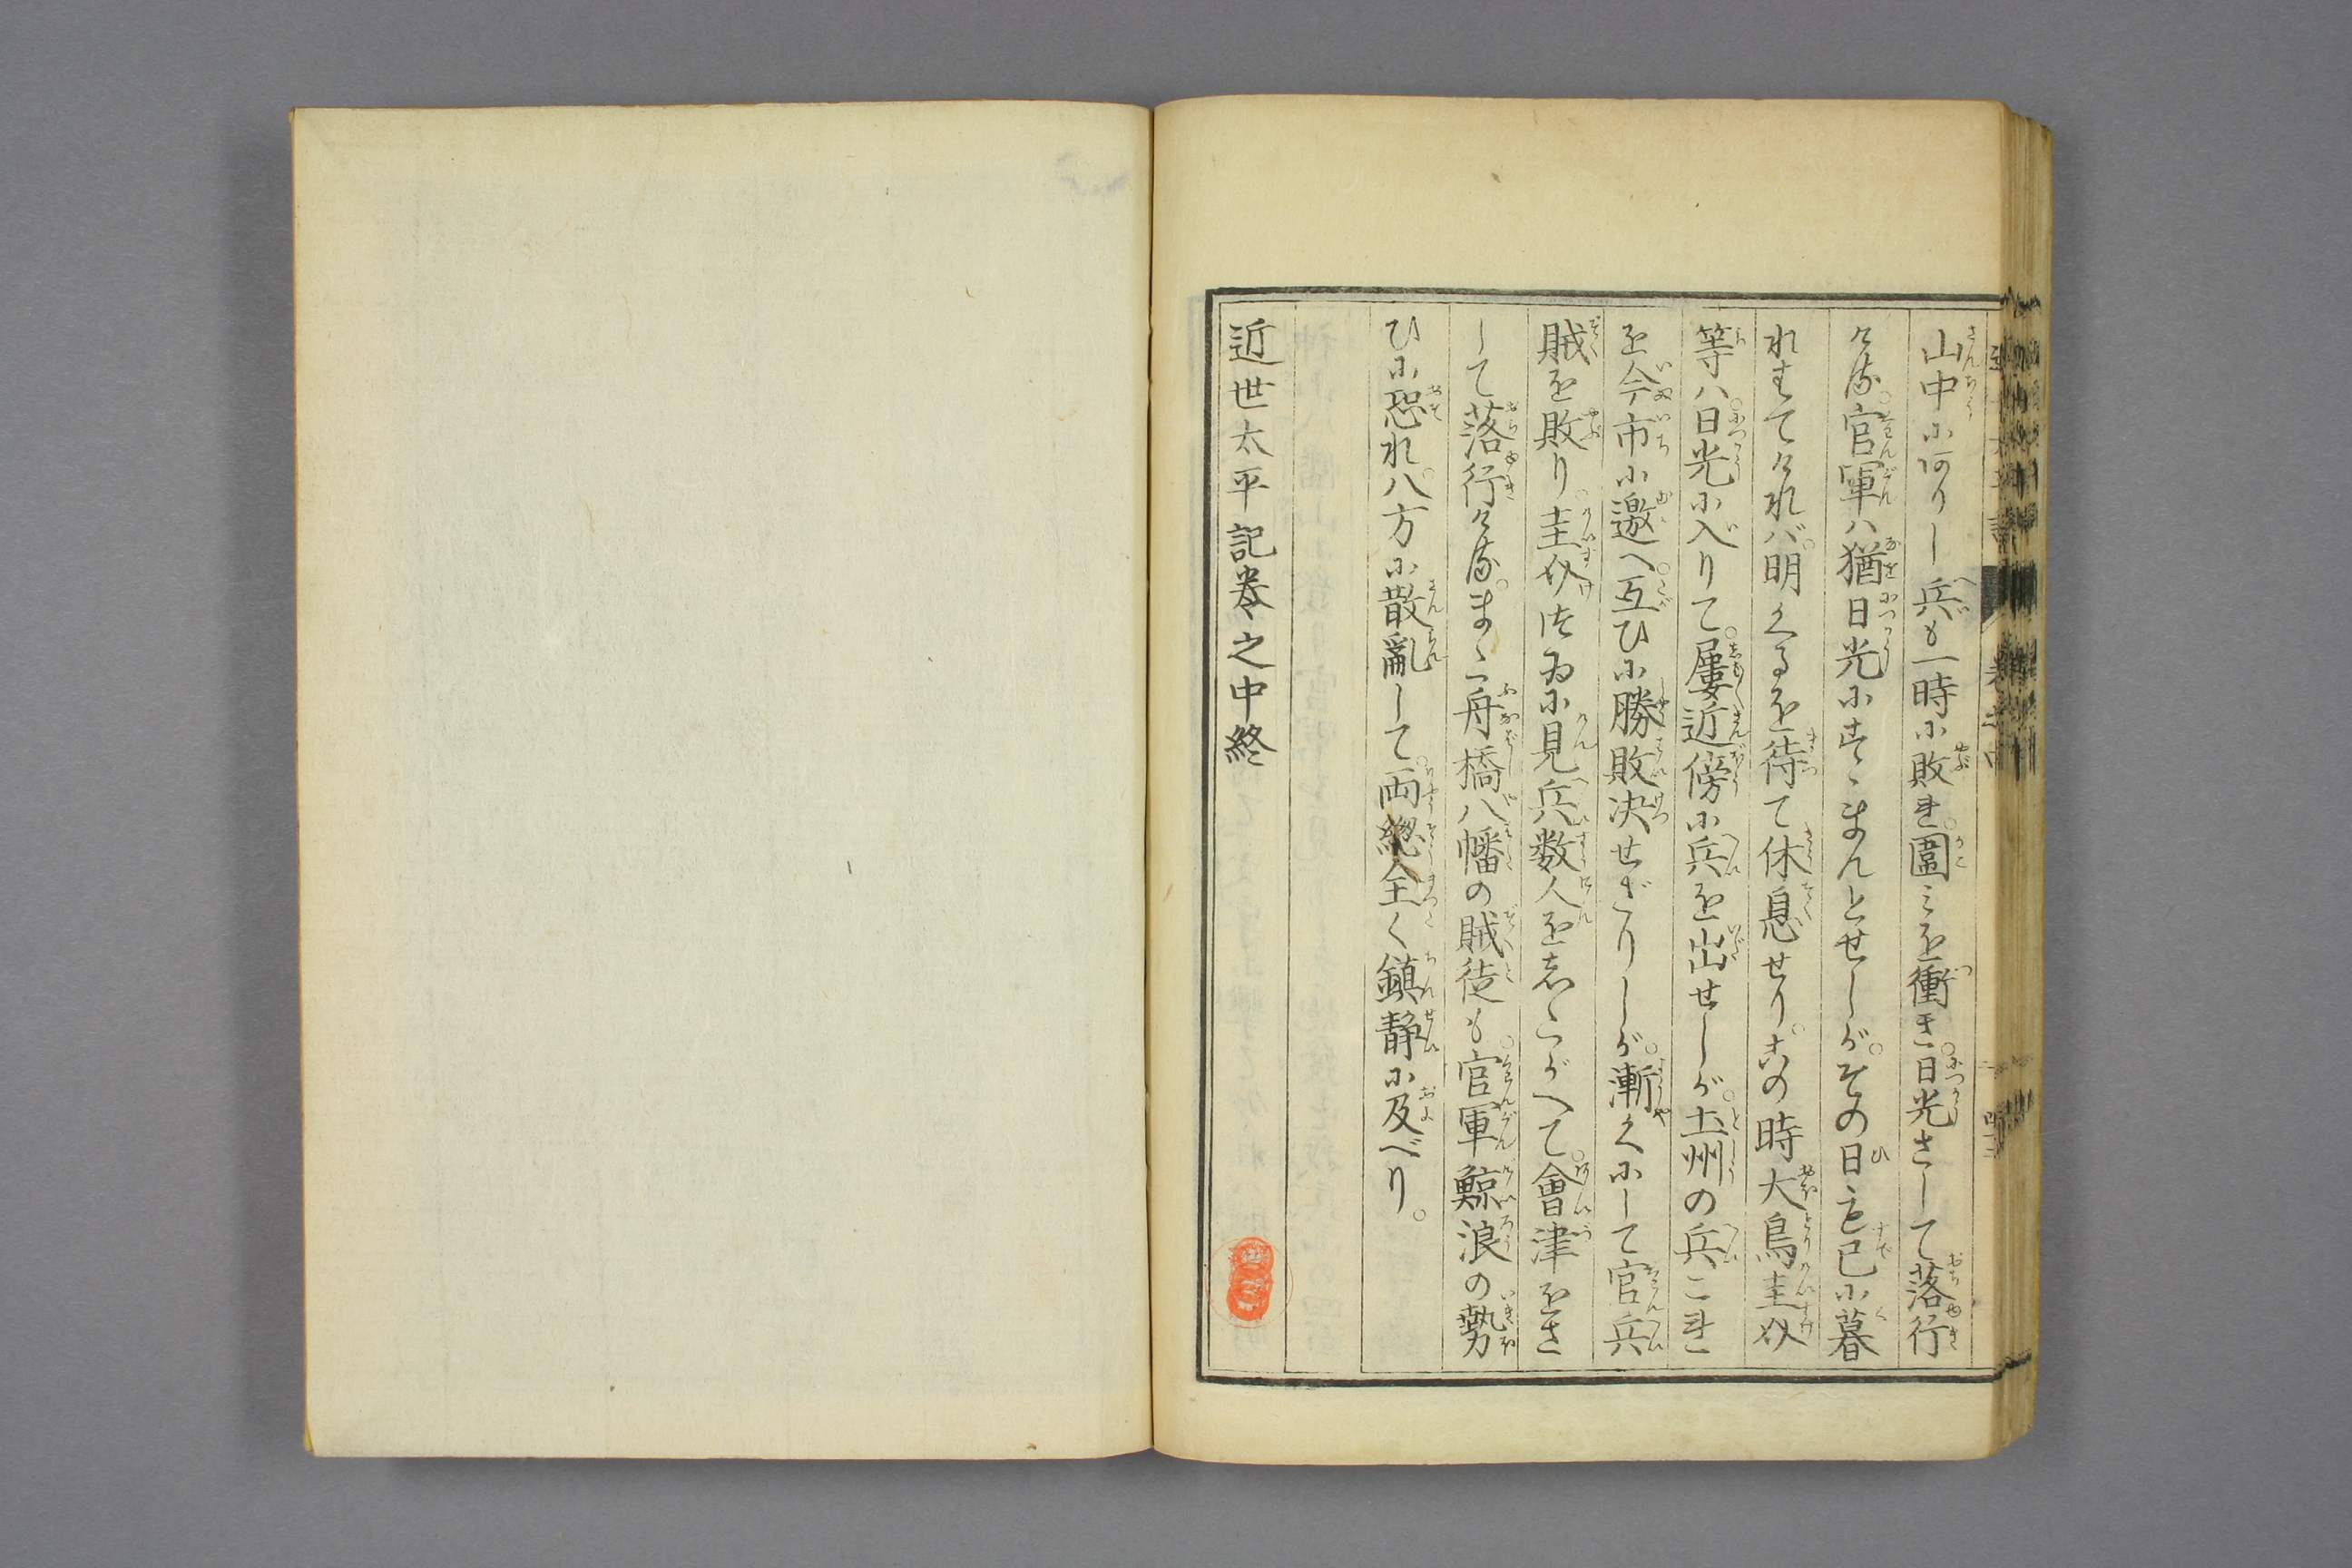 山中に何りし兵も一時に敗れ圍みを衝き。日光さして落行
ける。官軍ハ猶日光にすゝまんとせしが。その日も已に暮
れすてければ。明くるを待て休息せり。この時大鳥圭介
等ハ日光に入りて。屢近傍に兵を出せしが。土州の兵これ
を今市に邀へ。互ひに勝敗决せざりしが。漸くにして官兵
賊を敗り。圭介つゐに見兵数人をしたがへて。會津をさ
して落行ける。まゝ舟橋八幡の賊徒も。官軍鯨浪の勢
ひに恐れ。八方に散亂して。両總全く鎮静に及べり。
近世太平記巻之中終